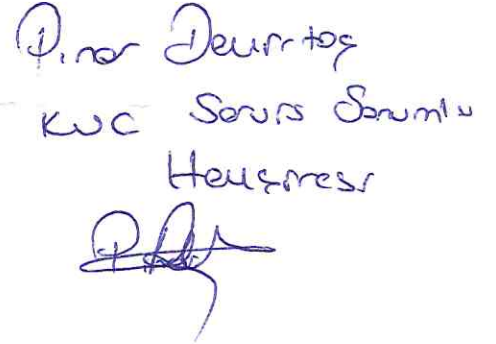 Pınar Demirtaş
KVC Servis Sorumlu
Hemşiresi